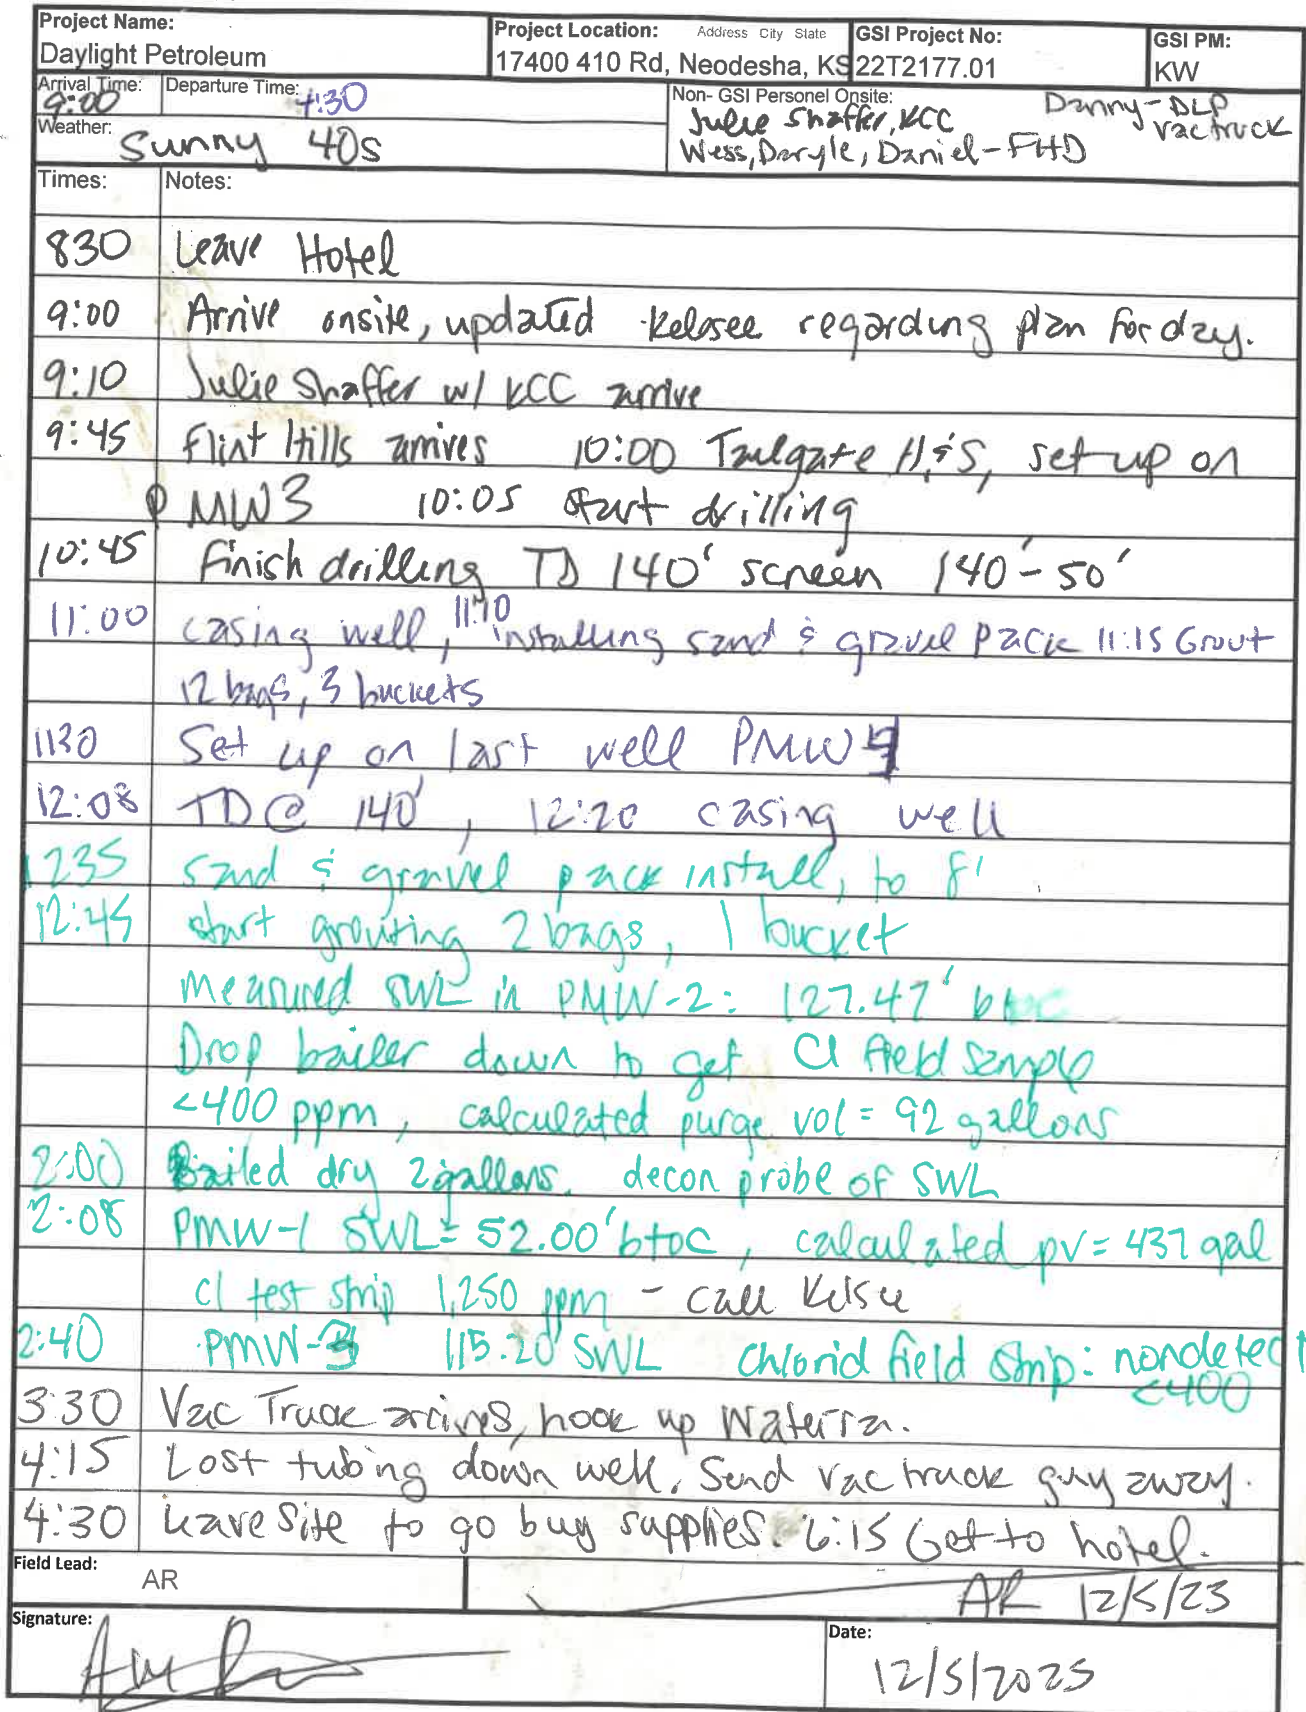 Project Name:
Daylight Petroleum
Project Location: Address City State
17400 410 Rd, Neodesha, KS
GSI Project No:
22T2177.01
GSI PM:
KW
Arrival Time: 9:00
Departure Time: 4:30
Weather: Sunny 40s
Non- GSI Personel Onsite:
Julie Shaffer, KCC
Wess, Daryle, Daniel-FHD
Danny-DLP
vac truck
Times: Notes:
830 Leave Hotel
9:00 Arrive onsite, updated Kelsee regarding plan for day.
9:10 Julie Shaffer w/ KCC arrive
9:45 Flint Hills arrives 10:00 Tailgate H&S, set up on
PMW3 10:05 start drilling
10:45 Finish drilling TD 140' screen 140'-50'
11:00 casing well, 11:10 installing sand & gravel pack 11:15 Grout
12 bags, 3 buckets
1130 Set up on last well PMW4
12:08 TD@ 140', 12:20 casing well
1235 sand & gravel pack install, to 8'
12:45 start grouting 2 bags, 1 bucket
measured SWL in PMW-2: 127.47' btoc
Drop bailer down to get Cl field sample
<400 ppm, calculated purge vol = 92 gallons
2:00 Bailed dry 2 gallons. decon probe of SWL
2:08 PMW-1 SWL= 52.00' btoc, calculated pv= 437 gal
cl test strip 1,250 ppm - call Kelsee
2:40 PMW-3 115.20' SWL Chlorid field strip: nondetect
<400
3:30 Vac Truck arrives, hook up Waterra.
4:15 Lost tubing down well. Send vac truck guy away.
4:30 Leave site to go buy supplies. 6:15 Get to hotel.
Field Lead:
AR
AR 12/5/23
Signature:
Date:
12/5/2023